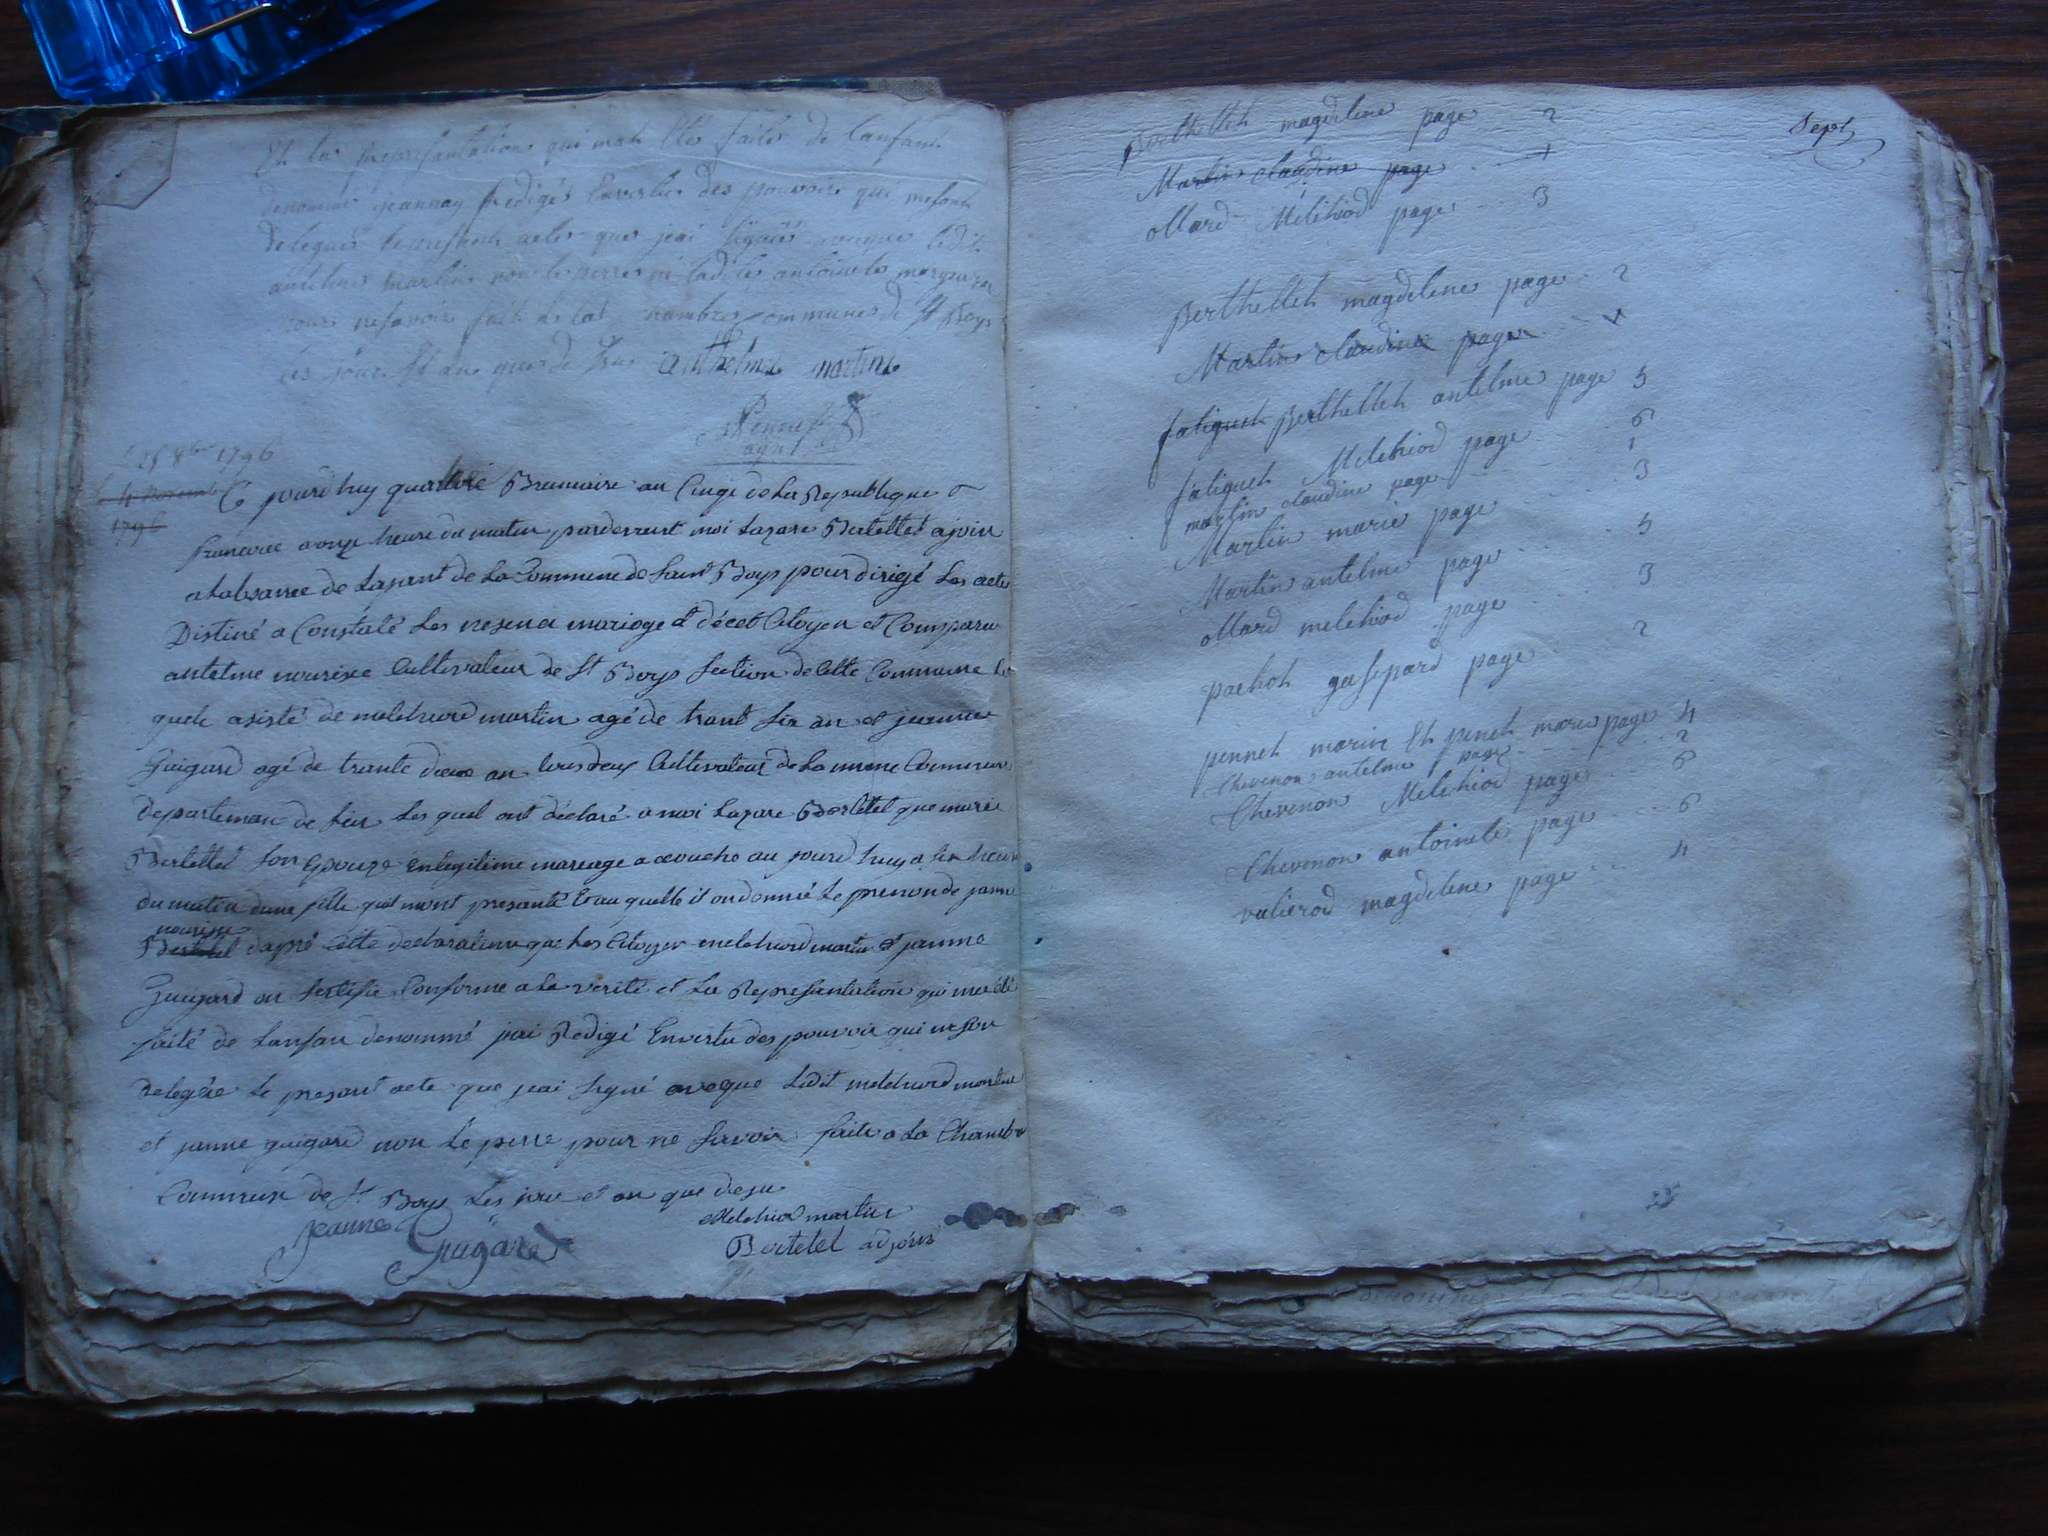 Et la representations qui mat Été faite de Lanfant
denommé jeannay redigés Envertue des pouvoire qui mesont
delegués lepresant acte que jai signée avecque ledit
antelme martin non le perre ni ladite antoinete
pour nesavoir fait à la chambre commune de St Boys
les jour Et an que de sus anthelme martin
Pennet
agent
1796
4 novembre
1796
Ce jourd'huy quatorze Brumaire an Cinqe de La Republique
francaise a onze heure du matin pardevent moi Lazare Bertellet ajoin
a Labsance de Lagant de La Commune de Saint Boys pour dirigé Les acte
Distiné a Constaté Les nesence mariage et décet Citoyen et Comparu
antelme nourixe Cultivateur de St Boys section de Cette Commune Le
quele asisté de melchiord martin agé de trant six an et jeanne
Guigard agé de trante deux an tous deux Cultivateur de La meme Commune
departeman de Lein Les quel ont déclaré a moi Lazare Bertetel que marie
Bertettet son Epouze enlegitime mareage a acouche au jourd huy a six heure
du matin dune fille quil mont presanté Et au quelle il on donné Le prenon de janne
nourixe
Bertetel dapré Cette declarationx que Les Citoyen melchiord martin et jeanne
Guigard on sertifie Conforme a La verite et La Represantation qui ma été
faite de Lanfan denommé jai Redigé En vertu des pouvoir qui me son
delegée Le presant acte que jai signé avaque Ledit melchiord martin
et janne guigard non Le perre pour ne savoir faite a La Chambre
Commune de St Boys Les jour et an que desu
jeanne Guigard
Melchior martin
Bertetel adjoin
Sept
Berthellet magdelene page 2
Martin claudine page 1
ollard Melchiod page 3
Berthellet magdelene page 2
Martin claudine page
fatiguet Berthellet antelme page 5
fatiguet Melchiod page 6
martin claudine page 1
Martin marie page 3
Martin antelme page 5
ollard melchiod page 3
pachot gaspard page 2
pennet marin Et penet marie page 4
Chevenon antelme page 2
Chevenon Melchiod page 6
Chevenon antoinete page 6
valierod magdelene page 4